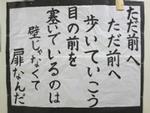 ただ前へ
ただ前へ
歩いていこう
目の前を
塞いでいるのは
壁じゃなくて
扉なんだ